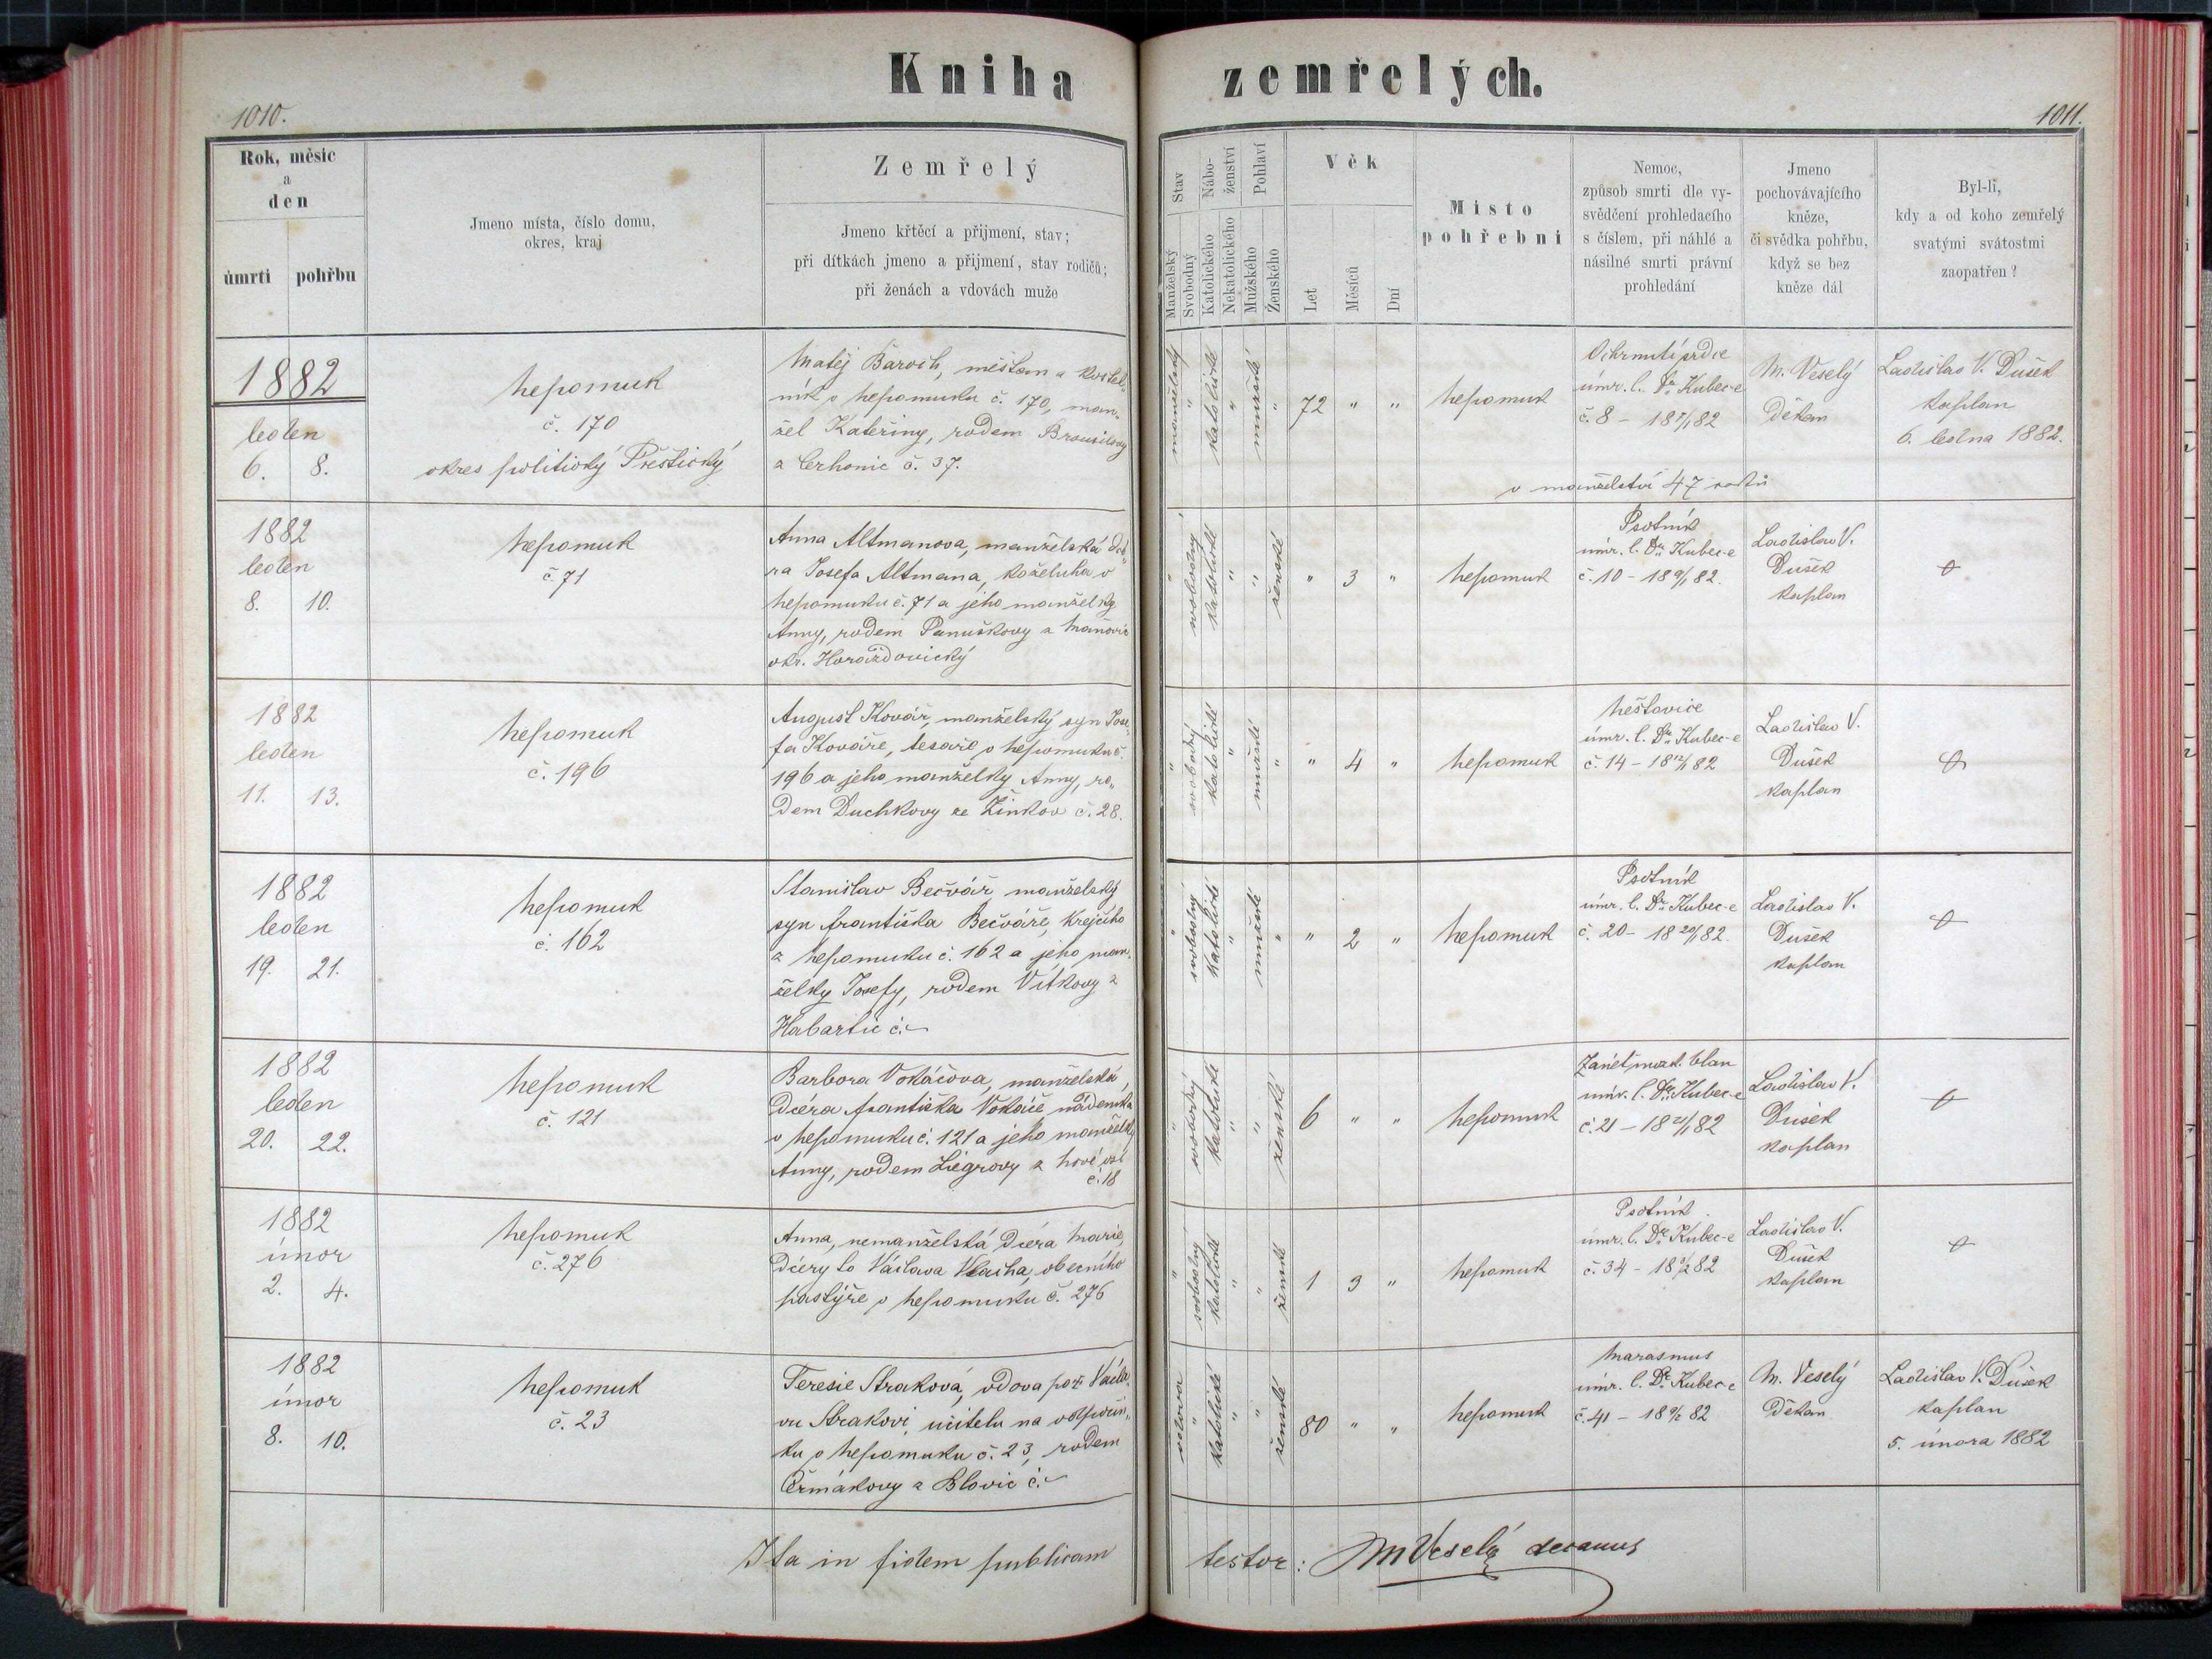 Kniha zemřelých.
1010.
1011.
Rok, měsíc
a
den
úmrtí
pohřbu
Jmeno místa, číslo domu,
okres, kraj
Zemřelý
Jmeno křtěcí a přijmení, stav;
při dítkách jmeno a přijmení, stav rodičů;
při ženách a vdovách muže
Stav
Manželský
Svobodný
Nábo-
ženství
Katolického
Nekatolického
Pohlaví
Mužského
Ženského
Věk
Let
Měsíců
Dní
Místo
pohřební
Nemoc,
způsob smrti dle vy-
svědčení prohledacího
s číslem, při náhlé a
násilné smrti právní
prohledání
Jmeno
pochovávajícího
kněze,
či svědka pohřbu,
když se bez
kněze dál
Byl-li,
kdy a od koho zemřelý
svatými svátostmi
zaopatřen?
1882
leden
6. 8.
Nepomuk
č. 170
okres politický Přeštický
Matěj Baroch, měšťan a kostel„
ník v Nepomuku č. 170, man„
žel Kateřiny, rodem Brousilovy
z Čerhonic č. 37.
manželský " katolické " mužské "
72 " "
Nepomuk
Ochrnutí srdce
úmr. l. Dr. Kubec-e
č. 8 – 18 7/1 82
M. Veselý
Děkan
Ladislav V. Dušek
kaplan
6. ledna 1882.
v manželství 47 roků
1882
leden
8. 10.
Nepomuk
č. 71
Anna Altmanova, manželská dce„
ra Josefa Altmana, koželuha v
Nepomuku č. 71 a jeho manželky
Anny, rodem Panuškovy z Maňovic
okr. Horažďovický
" svobodný katolické " " ženské
" 3 "
Nepomuk
Psotník
úmr. l. Dr. Kubec-e
č. 10 – 18 9/1 82.
Ladislav V.
Dušek
kaplan
1882
leden
11. 13.
Nepomuk
č. 196
August Kovář, manželský syn Jose„
fa Kováře, tesaře v Nepomuku č.
196 a jeho manželky Anny, ro„
dem Duchkovy ze Žinkov č. 28.
" svobodný katolické " mužské "
" 4 "
Nepomuk
Neštovice
úmr. l. Dr. Kubec-e
č. 14 – 18 12/1 82
Ladislav V.
Dušek
kaplan
1882
leden
19. 21.
Nepomuk
č. 162
Stanislav Bečvář manželský
syn Františka Bečváře, krejčího
z Nepomuku č. 162 a jeho man„
želky Josefy, rodem Vítkovy z
Habartic č.
" svobodný katolické " mužské "
" 2 "
Nepomuk
Psotník
úmr. l. Dr. Kubec-e
č. 20 – 18 20/1 82.
Ladislav V.
Dušek
kaplan
1882
leden
20. 22.
Nepomuk
č. 121
Barbora Vokáčova, manželská
dcera Františka Vokáče, nádeníka
v Nepomuku č. 121 a jeho manželky
Anny, rodem Liégrovy z Nové vsi
č. 18
" svobodný katolické " " ženské
6 " "
Nepomuk
Zánět mozk. blan
úmr. l. Dr. Kubec-e
č. 21 – 18 21/1 82
Ladislav V.
Dušek
kaplan
1882
únor
2. 4.
Nepomuk
č. 276
Anna, nemanželská dcera Marie,
dcery to Václava Vlacha, obecního
pastýře v Nepomuku č. 276
" svobodný katolické " " ženské
1 3 "
Nepomuk
Psotník
úmr. l. Dr. Kubec-e
č. 34 – 18 3/2 82
Ladislav V.
Dušek
kaplan
1882
únor
8. 10.
Nepomuk
č. 23
Teresie Straková, vdova po † Václa„
vu Strakovi, učitelu na odpočin„
ku v Nepomuku č. 23, rodem
Čermákovy z Blovic č.
vdova " katolické " " ženské
80 " "
Nepomuk
Marasmus
úmr. l. Dr. Kubec-e
č. 41 – 18 9/2 82
M. Veselý
Děkan
Ladislav V. Dušek
kaplan
5. února 1882
Ita in fidem publicam testor: M Veselý decanus